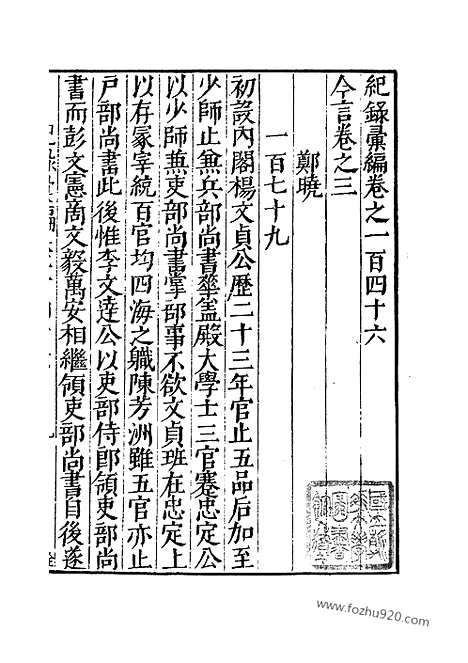 紀錄彙編卷之一百四十六
今言卷之三
鄭曉
一百七十九
初設內閣楊文貞公歷二十三年官止五品后加至
少師止兼兵部尚書華盖殿大學士三官蹇忠定公
以少師兼吏部尚書掌部事不欲文貞班在忠定上
以存冢宰統百官均四海之職陳芳洲雖五官亦止
戶部尚書此後惟李文達公以吏部侍郎領吏部尚
書而彭文憲商文毅萬安相繼領吏部尚書自後遂
www.fozhu920.com